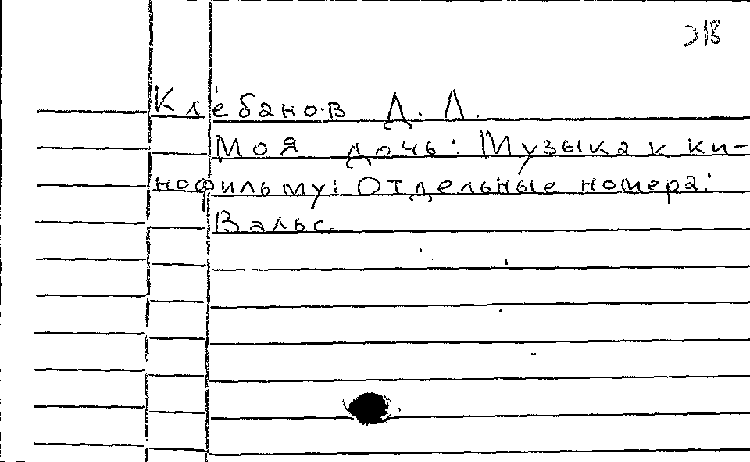 Э18
Клебанов Д. Л.
Моя дочь: Музыка к ки-
нофильму: Отдельные номера:
Вальс.